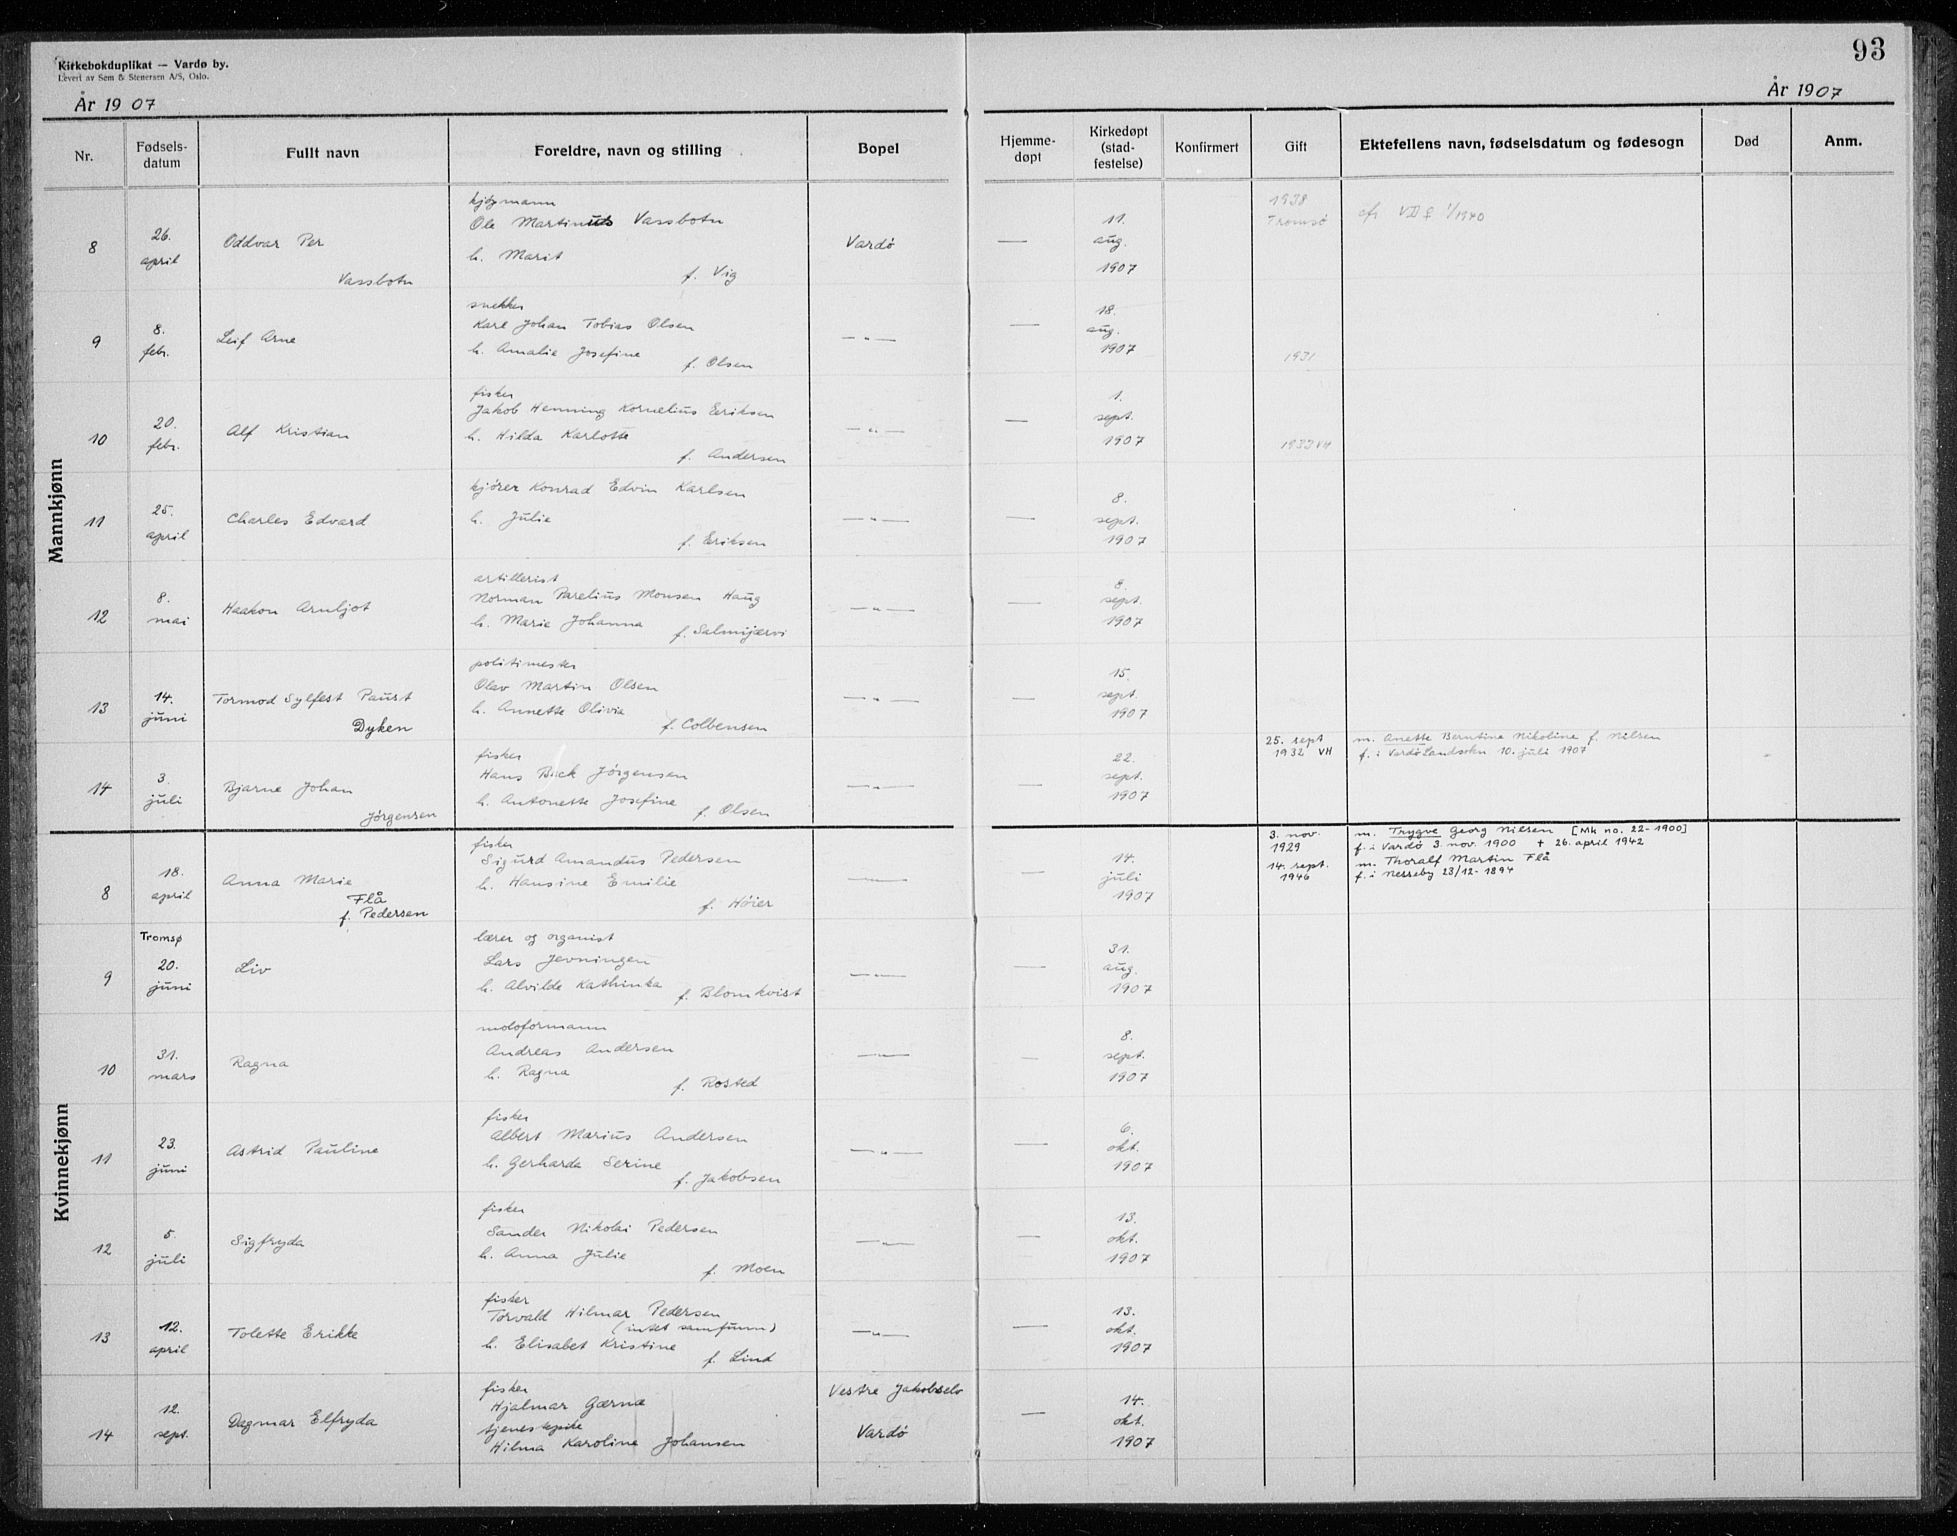 93
Kirkebokduplikat — Vardø by.
Levert av Sem & Stenersen A/S, Oslo.
År 1907
År 1907
Nr. Fødsels-datum Fullt navn Foreldre, navn og stilling Bopel Hjemme-døpt Kirkedøpt (stad-festelse) Konfirmert Gift Ektefellens navn, fødselsdatum og fødesogn Død Anm.
Mannkjønn
kjøpmann 1938
Ole Martinus Vassbotn 11. Tromsø cfr VII 1/1940
8 26. april Oddvar Per Vardø — aug.
h. Marit 1907
Vassbotn f. Vig
snekker 18.
9 8. febr. Leif Arne Karl Johan Tobias Olsen —"— — aug.
h. Amalie Josefine 1907 1931
f. Olsen
fisker 1.
10 20. febr. Alf Kristian Jakob Henning Kornelius Eriksen —"— — sept.
h. Hilda Karlotte 1907 1933 VH
f. Andersen
kjører Konrad Edvin Karlsen 8.
11 25. april Charles Edvard h. Julie —"— — sept.
f. Eriksen 1907
artillerist 8.
12 8. mai Haakon Arnljot Norman Parelius Monsen Haug —"— — sept.
h. Marie Johanna f. Salmijærvi 1907
politimester 15.
13 14. juni Tormod Sylfest Paust Olav Martin Olsen —"— — sept.
Dyken h. Annette Olivia f. Colbensen 1907
fisker 22. 25. sept m. Anette Berntine Nikoline f. Nilsen
1932 VH f. i Vardø Landsokn 10. juli 1907
14 3. juli Bjarne Johan Hans Beck Jörgensen —"— — sept.
Jörgensen h. Antonette Josefine f. Olsen 1907
Kvinnekjønn
fisker 3. nov. 1929 m. Trygve Georg Nilsen [Mk no. 22-1900]
f. i Vardø 3. nov. 1900 + 26. april 1942
8 18. april Anna Marie Sigurd Amandus Pedersen —"— — 14. juli 14. sept. 1946 m. Thoralf Martin Flå
Flå h. Hansine Emilie 1907 f. i Nesseby 23/12-1894
f. Pedersen f. Höier
Tromsø lærer og organist 31.
9 20. juni Liv Lars Jevningen —"— — aug.
h. Alvilde Kathinka f. Blomkvist 1907
moloformann 8.
10 31. mars Ragna Andreas Andersen —"— — sept.
h. Ragna f. Rosted 1907
fisker 6.
11 23. juni Astrid Pauline Albert Marius Andersen —"— — okt.
h. Gerharda Serine f. Jakobsen 1907
fisker 13.
12 5. juli Sigfryda Sander Nikolai Pedersen —"— — okt.
h. Anna Julie f. Moen 1907
fisker 13.
13 12. april Tolette Erikke Torvald Hilmar Pedersen —"— — okt.
(intet samfunn)
h. Elisabet Kristine f. Lind 1907
fisker Vestre Jakobselv 14.
14 12. sept. Dagmar Elfryda Hjalmar Gærnæ — okt.
tjenestepike Vardø 1907
Hilma Karoline Johansen